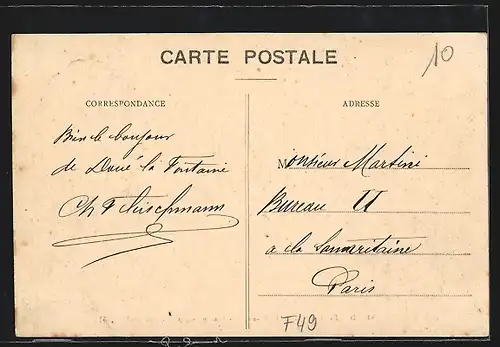 CARTE POSTALE
10
CORRESPONDANCE
Bien le bonjour
de Doué-la Fontaine
Ch Fleischmann
ADRESSE
Monsieur Martini
Bureau II
a la Samaritaine
Paris
F49